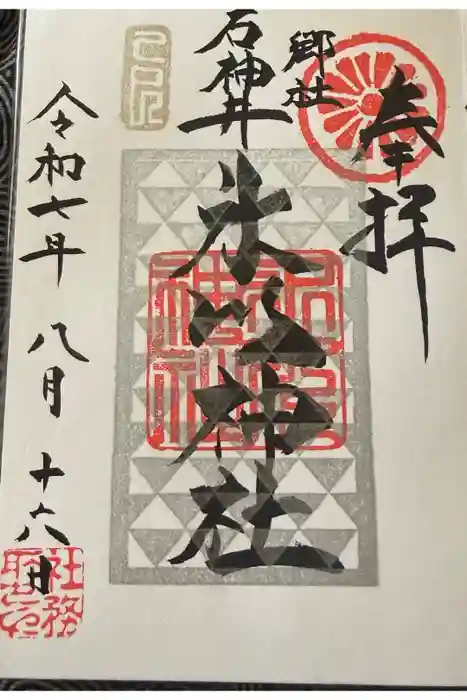 奉拝
郷社
石神井
氷川神社
令和七年八月十六日
社務